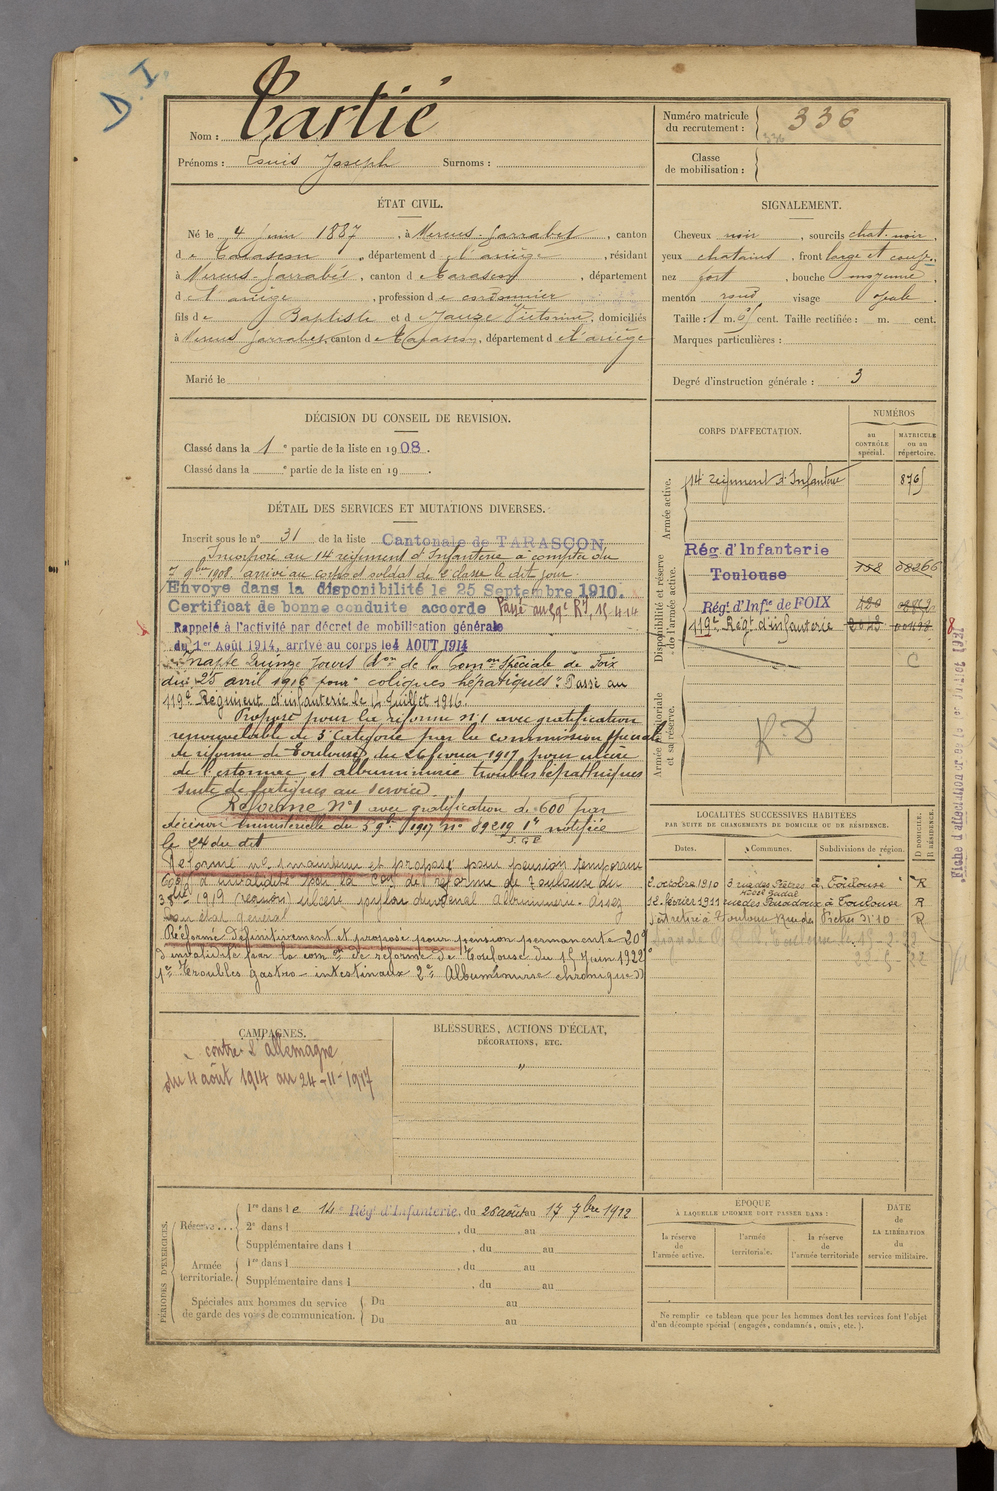 D.I.
Nom : Cartié
Prénoms : Louis Joseph Surnoms :
Numéro matricule
du recrutement : 336
336
Classe
de mobilisation :
ÉTAT CIVIL.
Né le 4 Juin 1887, à Mercus-Garrabet, canton
de Tarascon, département de l'ariège, résidant
à Mercus-Garrabet, canton de Tarascon, département
de l'ariège, profession de cordonnier
fils de Baptiste et de Jauze Victorine, domiciliés
à Mercus Garrabet, canton de Tarascon, département de l'ariège
Marié le
SIGNALEMENT.
Cheveux noir, sourcils chat. noir,
yeux chatains, front large et
nez fort, bouche moyenne,
menton rond, visage ovale.
Taille : 1 m. cent. Taille rectifiée : m. cent.
Marques particulières :
Degré d'instruction générale : 3
DÉCISION DU CONSEIL DE REVISION.
Classé dans la 1e partie de la liste en 1908.
Classé dans la e partie de la liste en 19 .
DÉTAIL DES SERVICES ET MUTATIONS DIVERSES.
Inscrit sous le n° 31 de la liste Cantonale de TARASCON
Incorporé au 14 régiment d'Infanterie à compter du
7 9bre 1908. arrivé au corps et soldat de 2e classe le dit jour.
Envoyé dans la disponibilité le 25 Septembre 1910.
Certificat de bonne conduite accordé Passé au 59e RI, 15-4-14
Rappelé à l'activité par décret de mobilisation générale
du 1er Août 1914, arrivé au corps le 4 AOUT 1914
Inapte Quinze Jours don de la Comon Spéciale de Foix
du 25 avril 1916 pour "coliques hépatiques". Passé au
119e Régiment d'infanterie le 14 Juillet 1916.
Proposé pour la réforme n°1 avec gratification
renouvelable de 5e Catégorie par la commission spéciale
de réforme de Toulouse du 26 février 1917 pour ulcère
de l'estomac et albuminurie troubles hépathiques
suite de fatigues au service.
Réformé N°1 avec gratification de 600f par
décision ministérielle du 5 9bre 1917 n° 89219 1r notifiée
le 24 du dit
Réformé n° 1 maintenu et proposé pour pension temporaire
60% d'invalidité par la Con de réforme de Toulouse du
1919 ulcère pyloro duodénal Albuminurie. Assez
bon état général
Réformé définitivement et proposé pour pension permanente 20%
d'invalidité par la comon de réforme de Toulouse du 15 Juin 1922
1° Troubles gastro-intestinaux 2° Albuminurie chronique"
CORPS D'AFFECTATION.
NUMÉROS
au
CONTRÔLE
spécial.
MATRICULE
ou au
répertoire.
Armée active.
14e régiment d'Infanterie 8765
Disponibilité et réserve
de l'armée active.
Rég. d'Infanterie
Toulouse
Régt d'Infie de FOIX
119e Régt d'infanterie
C
Armée territoriale
et sa réserve.
R.D
LOCALITÉS SUCCESSIVES HABITÉES
PAR SUITE DE CHANGEMENTS DE DOMICILE OU DE RÉSIDENCE.
Dates. Communes. Subdivisions de région. D DOMICILE. R RÉSIDENCE.
2 octobre 1910 3 rue des Prêtres à Toulouse R
12 février 1911 rue des Paradoux à Toulouse R
s'est retiré à Toulouse Rue des Prêtres N° 10 R
15-2-22
22-5-22
CAMPAGNES.
contre l'allemagne
du 4 août 1914 au 24-11-1917
BLESSURES, ACTIONS D'ÉCLAT,
DÉCORATIONS, ETC.
"
PÉRIODES D'EXERCICES.
Réserve...
1re dans le 14e Régt d'Infanterie, du 26 août au 17 7bre 1912
2e dans l , du au
Supplémentaire dans l , du au
Armée
territoriale.
1re dans l , du au
Supplémentaire dans l , du au
Spéciales aux hommes du service
de garde des voies de communication.
Du au
Du au
EPOQUE
À LAQUELLE L'HOMME DOIT PASSER DANS :
la réserve
de
l'armée active.
l'armée
territoriale.
la réserve
de
l'armée territoriale
DATE
de
LA LIBÉRATION
du
service militaire.
Ne remplir ce tableau que pour les hommes dont les services font l'objet
d'un décompte spécial (engagés, condamnés, omis, etc.).